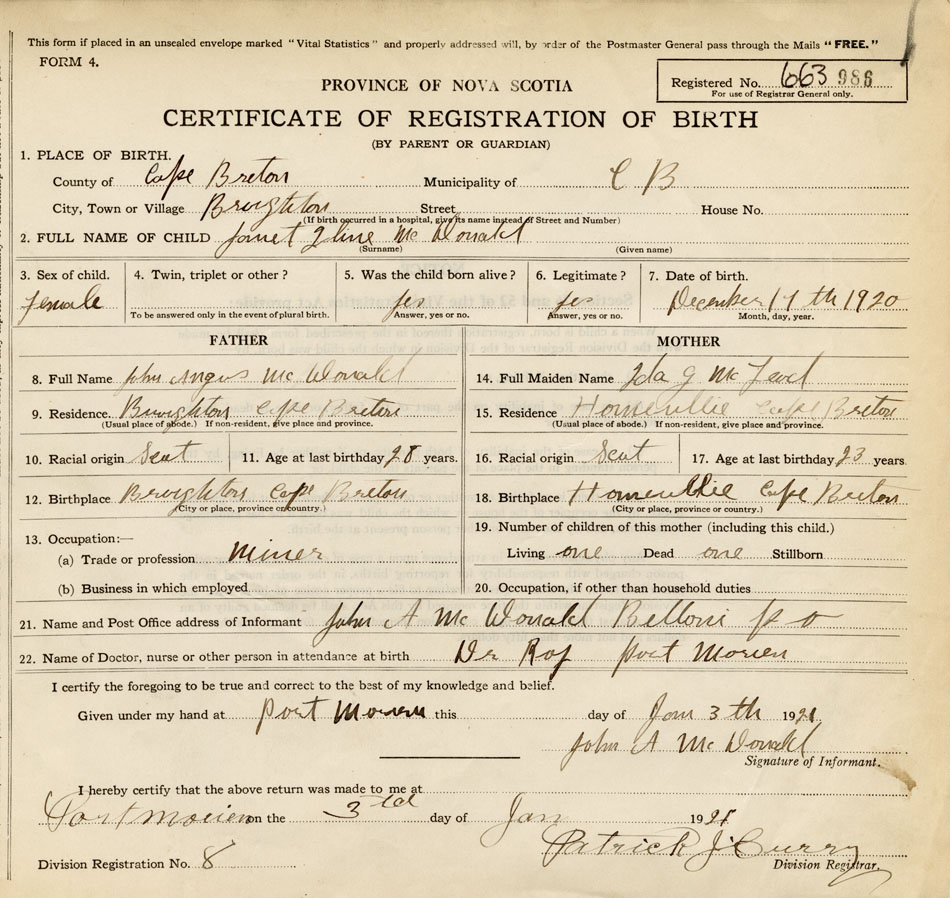 This form if placed in an unsealed envelope marked "Vital Statistics" and properly addressed will, by order of the Postmaster General pass through the Mails "FREE."
FORM 4.
Registered No. 663 986
For use of Registrar General only.
PROVINCE OF NOVA SCOTIA
CERTIFICATE OF REGISTRATION OF BIRTH
(BY PARENT OR GUARDIAN)
1. PLACE OF BIRTH.
County of Cape Breton Municipality of C B
City, Town or Village Broighton Street House No.
(If birth occurred in a hospital, give its name instead of Street and Number)
2. FULL NAME OF CHILD Janet Mc Donald
(Surname) (Given name)
3. Sex of child. 4. Twin, triplet or other? 5. Was the child born alive? 6. Legitimate? 7. Date of birth.
female yes yes December 17 th 1920
To be answered only in the event of plural birth. Answer, yes or no. Answer, yes or no. Month, day, year.
FATHER MOTHER
8. Full Name John Angus Mc Donald 14. Full Maiden Name Ida J Mc Leod
9. Residence. Broighton Cape Breton 15. Residence Homevllie Cape Breton
(Usual place of abode.) If non-resident, give place and province. (Usual place of abode.) If non-resident, give place and province.
10. Racial origin Scot 11. Age at last birthday 28 years. 16. Racial origin Scot 17. Age at last birthday 23 years
12. Birthplace Broighton Cape Breton 18. Birthplace Homevllie Cape Breton
(City or place, province or country.) (City or place, province or country.)
13. Occupation:— 19. Number of children of this mother (including this child.)
(a) Trade or profession Miner Living one Dead one Stillborn
(b) Business in which employed 20. Occupation, if other than household duties
21. Name and Post Office address of Informant John A Mc Donald Belloni p o
22. Name of Doctor, nurse or other person in attendance at birth Dr Roy port Morien
I certify the foregoing to be true and correct to the best of my knowledge and belief.
Given under my hand at port Morien this day of Jan 3 th 1921
John A Mc Donald
Signature of Informant.
I hereby certify that the above return was made to me at
Port morien on the 3 day of Jan 1921
Patrick J Curry
Division Registration No. 8 Division Registrar.